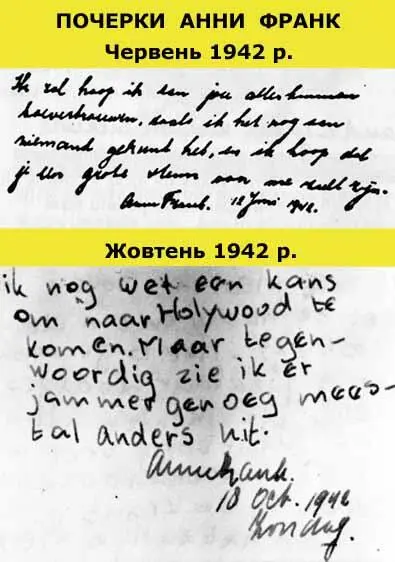 ПОЧЕРКИ АННИ ФРАНК
Червень 1942 р.
Ik zal hoop ik aan jou alles kunnen
toevertrouwen, zoals ik het nog aan
niemand gekund heb, en ik hoop dat
je een grote steun aan me zult zijn.
Anne Frank. 12 Juni 1942.
Жовтень 1942 р.
ik nog wel een kans
om naar Holywood te
komen. Maar tegen-
woordig zie ik er
jammer genoeg mees-
tal anders uit.
Annefrank.
18 Oct. 1942
Zondag.